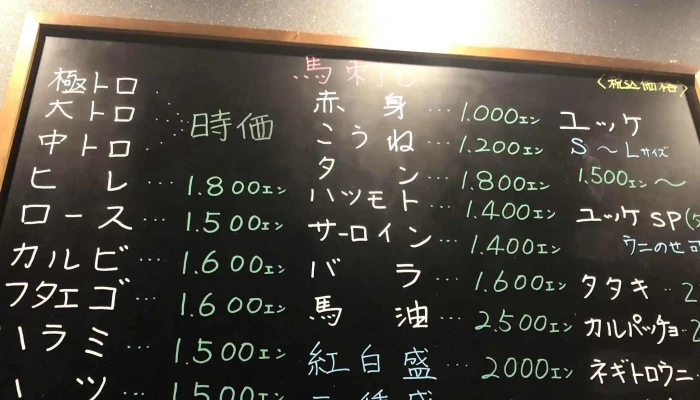 馬刺し
〈税込価格〉
極トロ
大トロ
中トロ
時価
ヒレ … 1.800エン
ロース … 1.500エン
カルビ … 1.600エン
フタエゴ … 1.600エン
ハラミ … 1.500エン
ハツ … 1.500エン
赤身 … 1.000エン
こうね … 1.200エン
タン … 1.800エン
ハツモト … 1.400エン
サーロイン … 1.400エン
バラ … 1.600エン
馬油 … 2.500エン
紅白盛 … 2000エン
ユッケ
S〜Lサイズ
1.500エン〜
ユッケSP
ウニのせ可
タタキ … 2
カルパッチョ … 2
ネギトロウニ